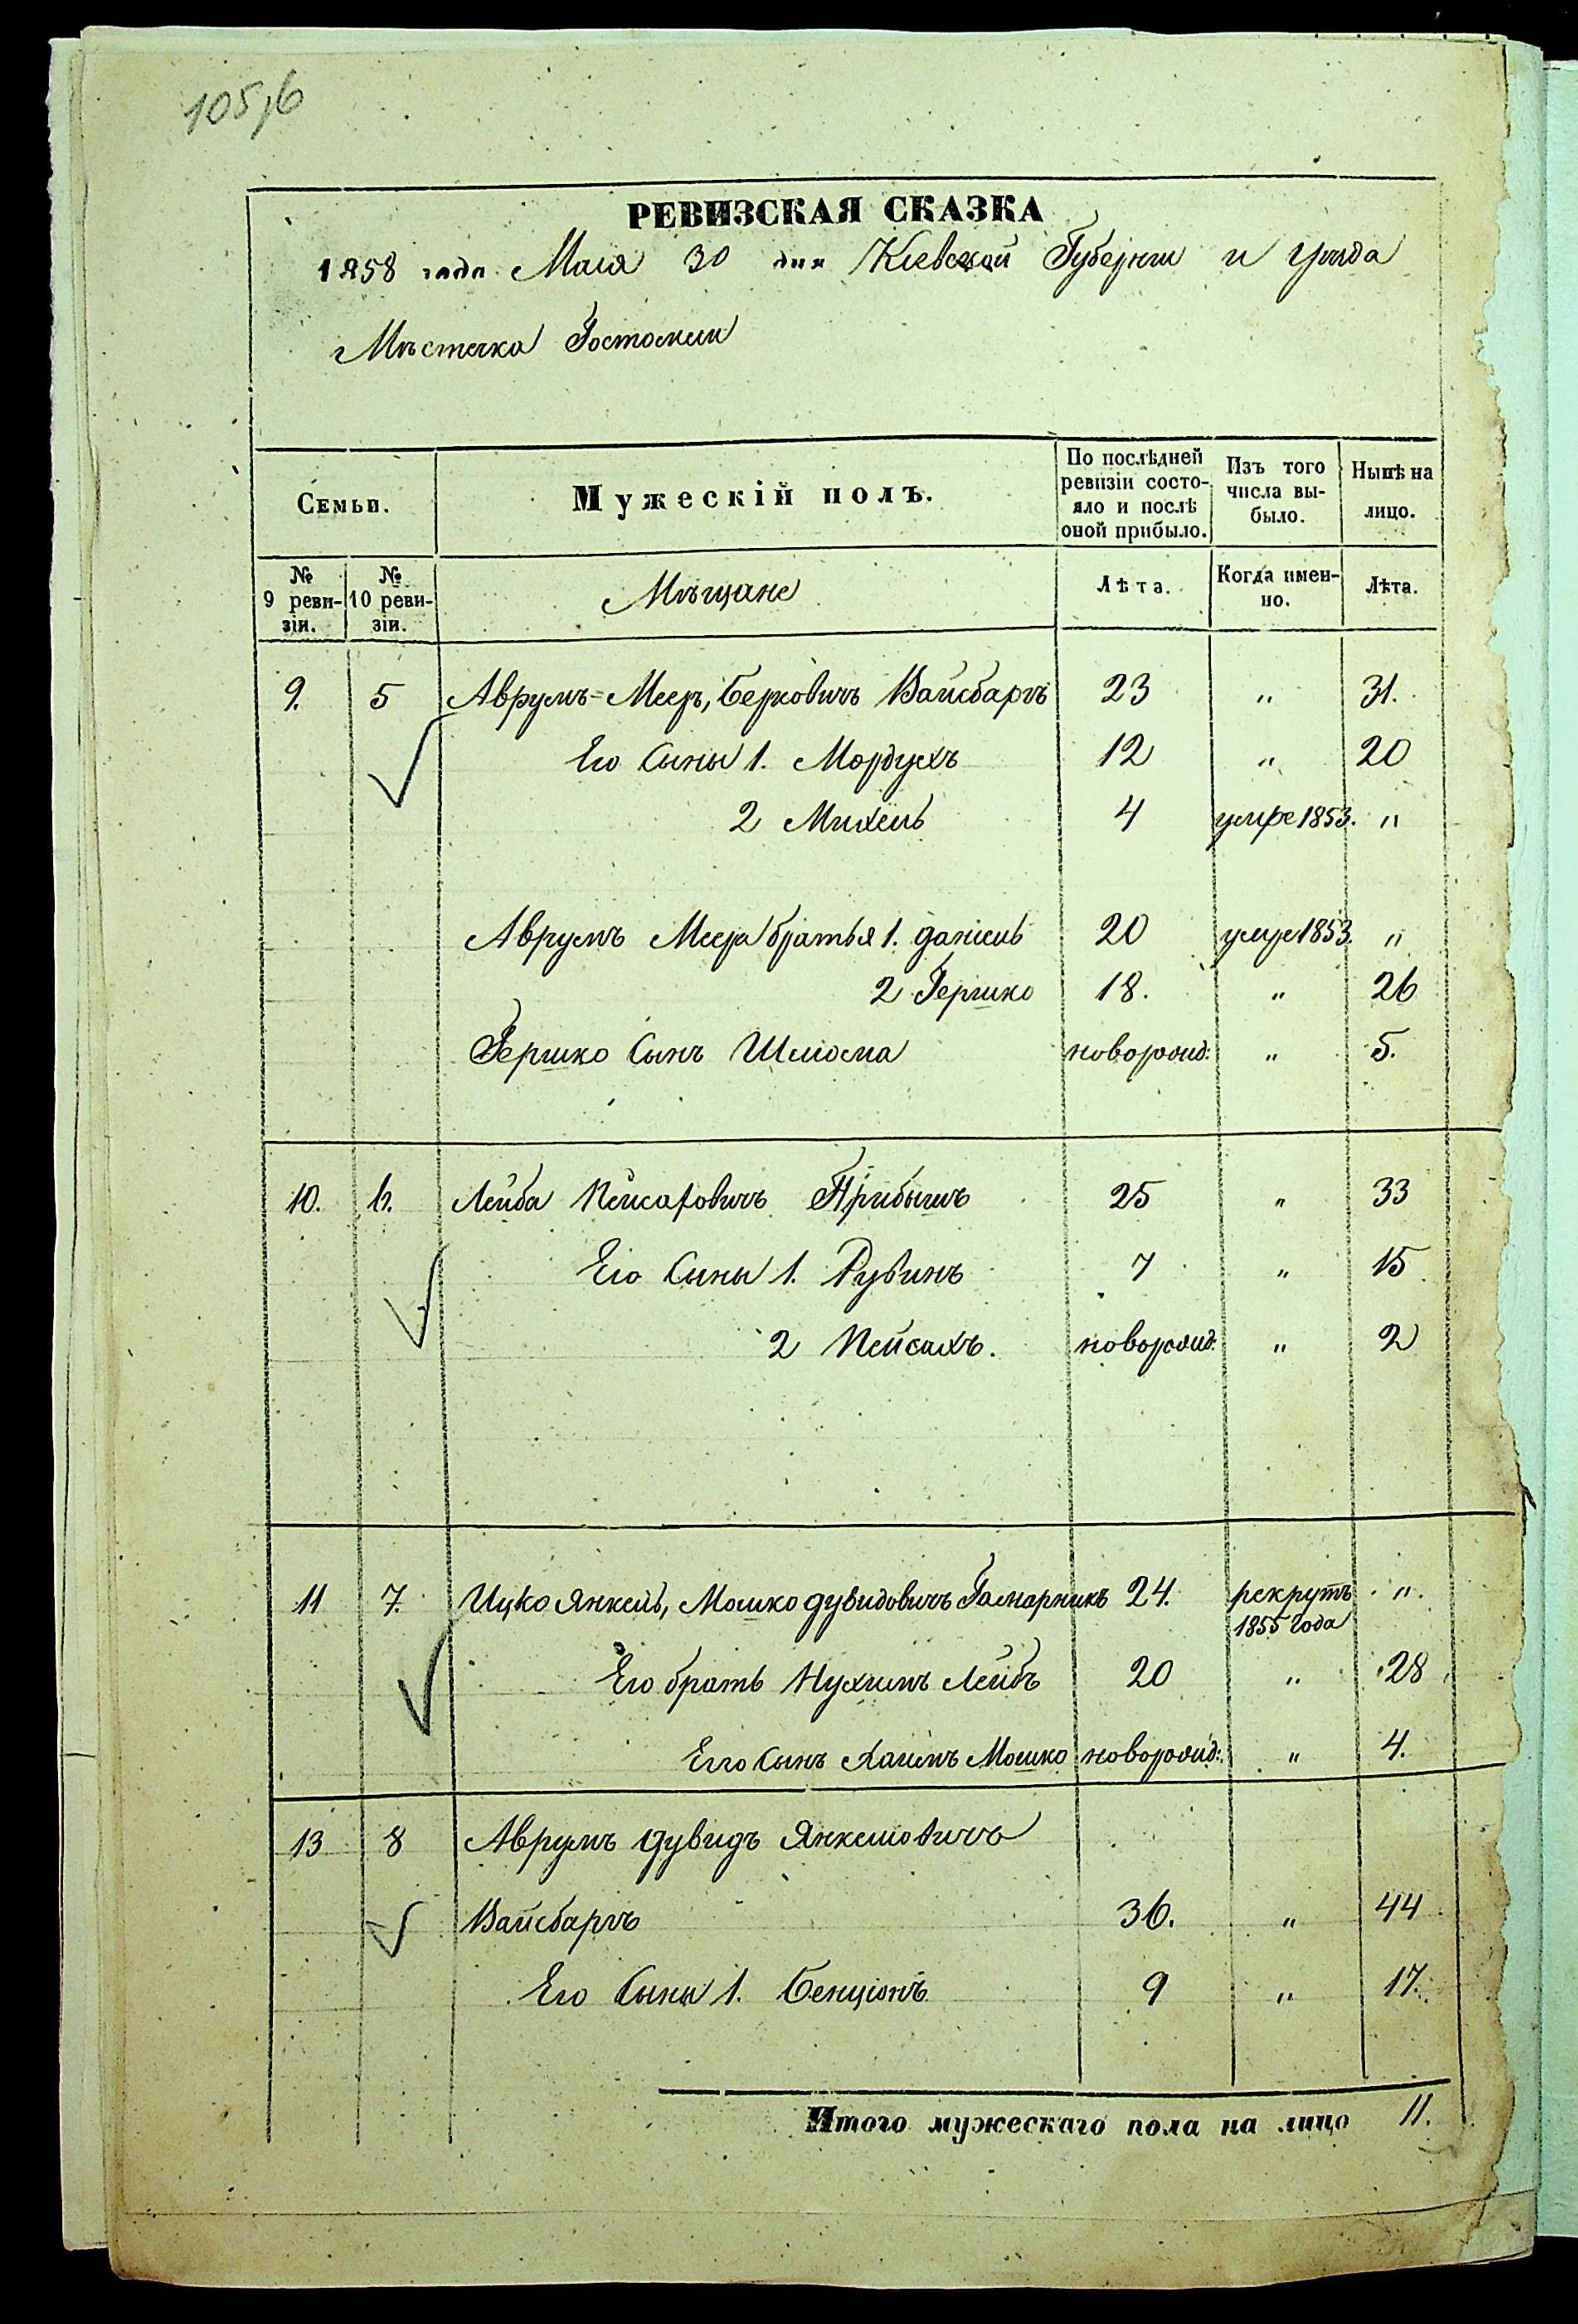 105/6
РЕВИЗСКАЯ СКАЗКА
1858 года Маія 30 дня Кіевской Губерніи и уѣзда
Мѣстечка Гостомля
Семьи. Мужескій полъ. По послѣдней ревизіи состояло и послѣ оной прибыло. Изъ того числа выбыло. Нынѣ на лицо.
№ 9 ревизіи. № 10 ревизіи. Мѣщане Лѣта. Когда именно. Лѣта.
9. 5 Аврумъ=Мееръ, Берковичъ Вайсбаргъ 23 " 31.
Его Сыны 1. Мордухъ 12 " 20
2 Михель 4 умре 1853. "
Аврумъ Меера братья 1. Даніель 20 умре 1853. "
2 Гершко 18. " 26
Гершко Сынъ Шліома новорожд: " 5.
10. 6. Лейба Пейсаховичъ 25 " 33
Его Сыны 1. Рувинъ 7 " 15
2 Пейсахъ. новорожд: " 2
11 7. Ицко Янкель, Мошко Дувидовичъ Гамарникъ 24. рекрутъ "
1855 года
Его братъ Нухимъ Лейбъ 20 " 28
Его Сынъ Хаимъ Мошко новорожд: " 4.
13 8 Аврумъ Дувидъ Янкеліовичъ
Вайсбаргъ 36. " 44
Его Сыны 1. Бенціонъ 9 " 17.
Итого мужескаго пола на лицо 11.